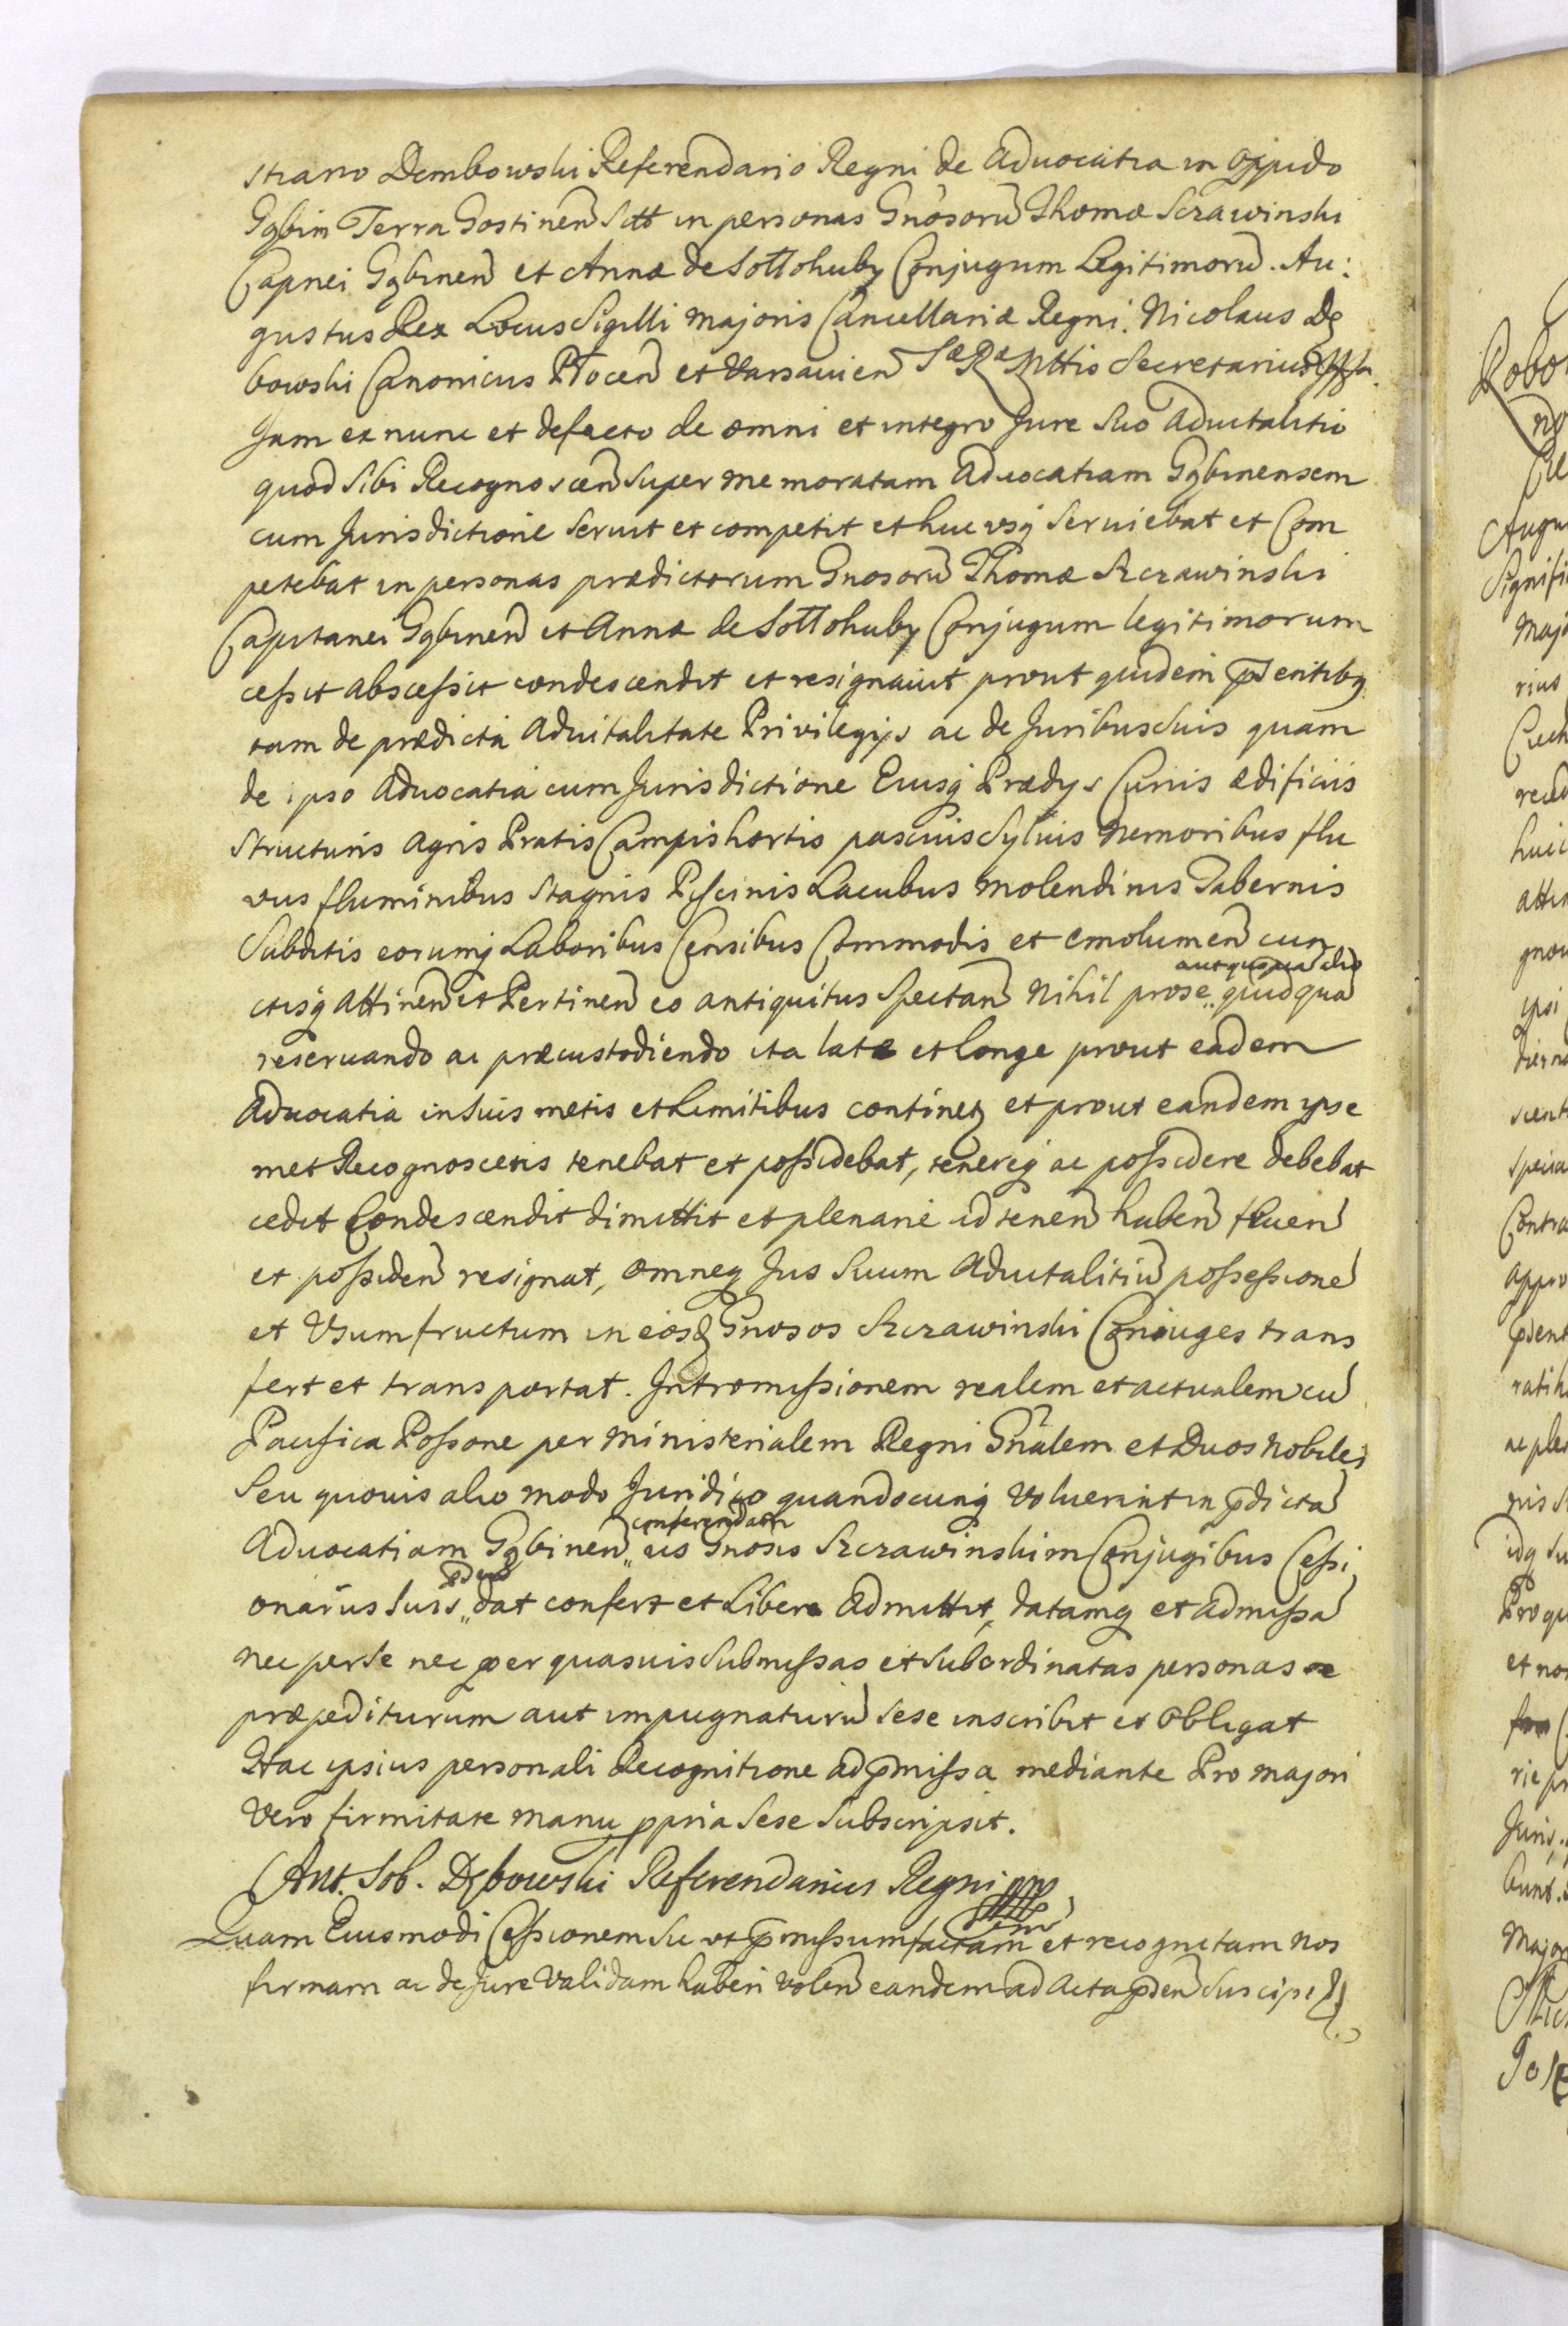 strano Dembowski Referendario Regni de Aduocatia in Oppido
Gąbin Terra Gostinen Sitt in personas Gnosorū Thomæ Sczawinski
Capnei Gąbinen et Annæ de Sołłohuby Conjugum Legitimorū. Au:
gustus Rex Locus Sigilli Majoris Cancellariæ Regni. Nicolaus Dę
bowski Canonicus Płocen et Varsauien Sæ Ræ Mttis Secretarius
Jam ex nunc et defacto de omni et integro Jure Suo Aduitalitio
quod Sibi Recognoscen Super memoratam Aduocatiam Gąbinensem
cum Jurisdictione Seruit et competit et huc usq Seruiebat et Com
petebat in personas prædictorum Gnosorū Thomæ Szczawinski
Capitanei Gąbinen et Annæ de Sołłohuby Conjugum legitimorum
cessit abscessit condescendit et resignauit prout quidem pńsentibq
tam de prædictá Aduitalitate Privilegijs ac de Juribus Suis quam
de ipso Aduocatia cum Jurisdictione Eiusq Prædys Curiis ædificiis
Structuris Agris Pratis Campis hortis pascuis Syluis Nemoribus flu
vus fluminibus Stagnis Piscinis Lacubus Molendinis Tabernis
Subditis eorumq Laboribus Censibus Commodis et emolumen cun
ctisq Attinen et Pertinen eo antiquitus Spectan Nihil pro se quidqua
reseruando ac præcustodiendo ita late et longe prout eadem
Aduocatia in Suis metis et Limitibus continetq et prout eandem ipse
met Recognoscens tenebat et possidebat, tenereq ac possidere debebat
cedit Condescendit dimittit et plenarie ad tenen haben fruen
et possiden resignat, omneq Jus Suum Aduitalitiū possessione
et Usumfructum in eosd Gnosos Szczawinski Coniuges trans
fert et transportat. Intromissionem realem et actualem cū
Pacifica Possone per Ministerialem Regni Gñalem et Duos Nobiles
Seu quouis alio modo Juridico quandocunq Voluerint in pdictā
conferendam
Aduocatiam Gąbinen iis Gnosis Szczawinskim Conjugibus Cessi
onariis Suis dat confert et Libere Admittit, datamq et Admissā
nec per se nec per quasuis Submissas et Subordinatas personas se
præpediturum aut impugnaturū Sese inscribit et Obligat
Hac ipsius personali Recognitione ad pmissa mediante Pro majori
Vero firmitate manu ppria Sese Subscripsit.
Ant. Seb. Dębowski Referendarius Regni
Quam Eiusmodi Cessionem Sic ut pmissum factam et recognitam Nos
firmam ac de Jure Validam haberi volen eandem ad Acta pden Suscipi